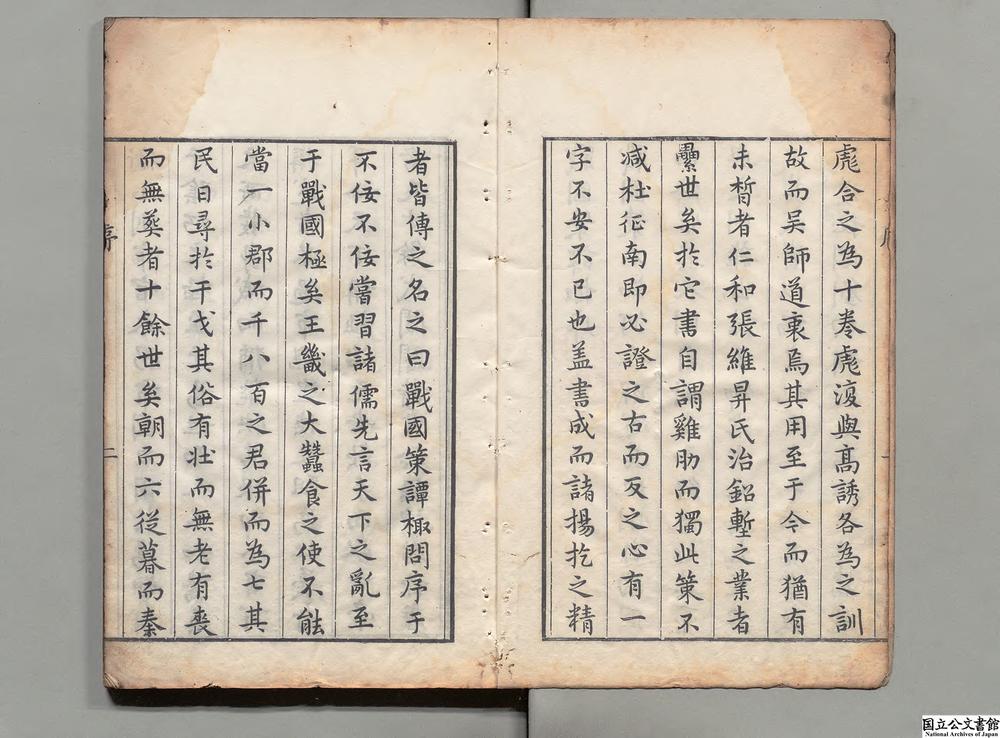 彪合之為十卷彪復與髙誘各為之訓
故而吳師道裒焉其用至于今而猶有
未晳者仁和張維昇氏治鉛塹之業者
纍世矣於它書自謂雞肋而獨此策不
减杜征南即必證之古而反之心有一
字不安不已也盖書成而諸揚扢之精
者皆傳之名之曰戰國策譚棷問序于
不佞不佞嘗習諸儒先言天下之亂至
于戰國極矣王畿之大蠶食之使不能
當一小郡而千八百之君併而為七其
民日尋於干戈其俗有壯而無老有喪
而無葬者十餘世矣朝而六從暮而秦
序 二
国立公文書館
National Archives of Japan